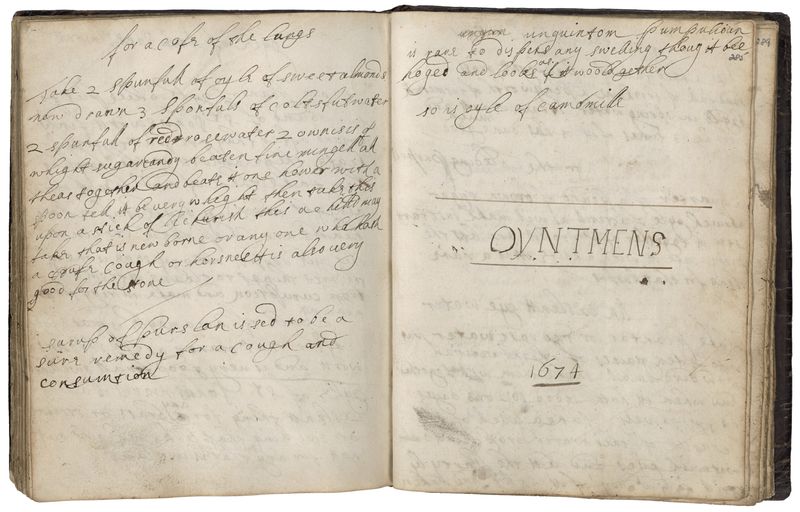 for a Cofe of the Lungs
Take 2 spunfull of oyle of sweet almonds
now drawn 3 sponfuls of Coltsfutwater
2 spunfull of reed rosewater 2 ownisis of
whight sugarcandy beaten fine mingell all
theas together and beate it one hower with a
spoon tell it be very whight then take this
upon a stick of lickurish this a child may
take that is new borne or any one who hath
a Cofe Cough or horsnes it is also very
good for the stone
sarup of purslan is sed to be a
sure remedy for a Cough and
Consumtion
unguintom pumpulioun
is rare to dispers any swelling though it bee
hoged and looks as if it would gether
so is oyle of Camomille
289
285
OVNTMENS
1674